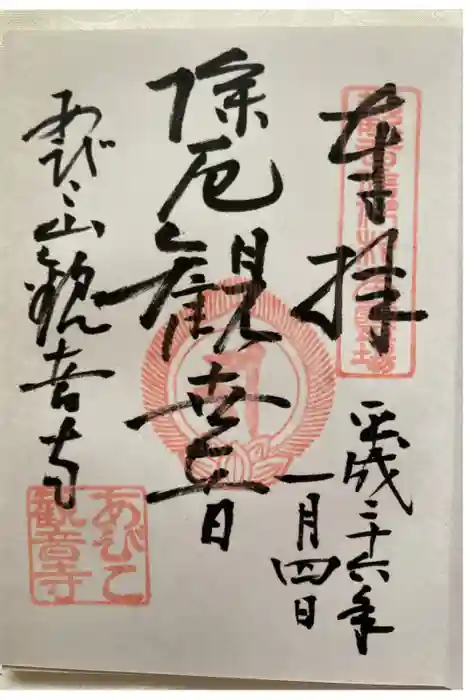 奉拝
平成二十六年
一月四日
除厄観世音
あびこ山観音寺
あびこ
観音寺